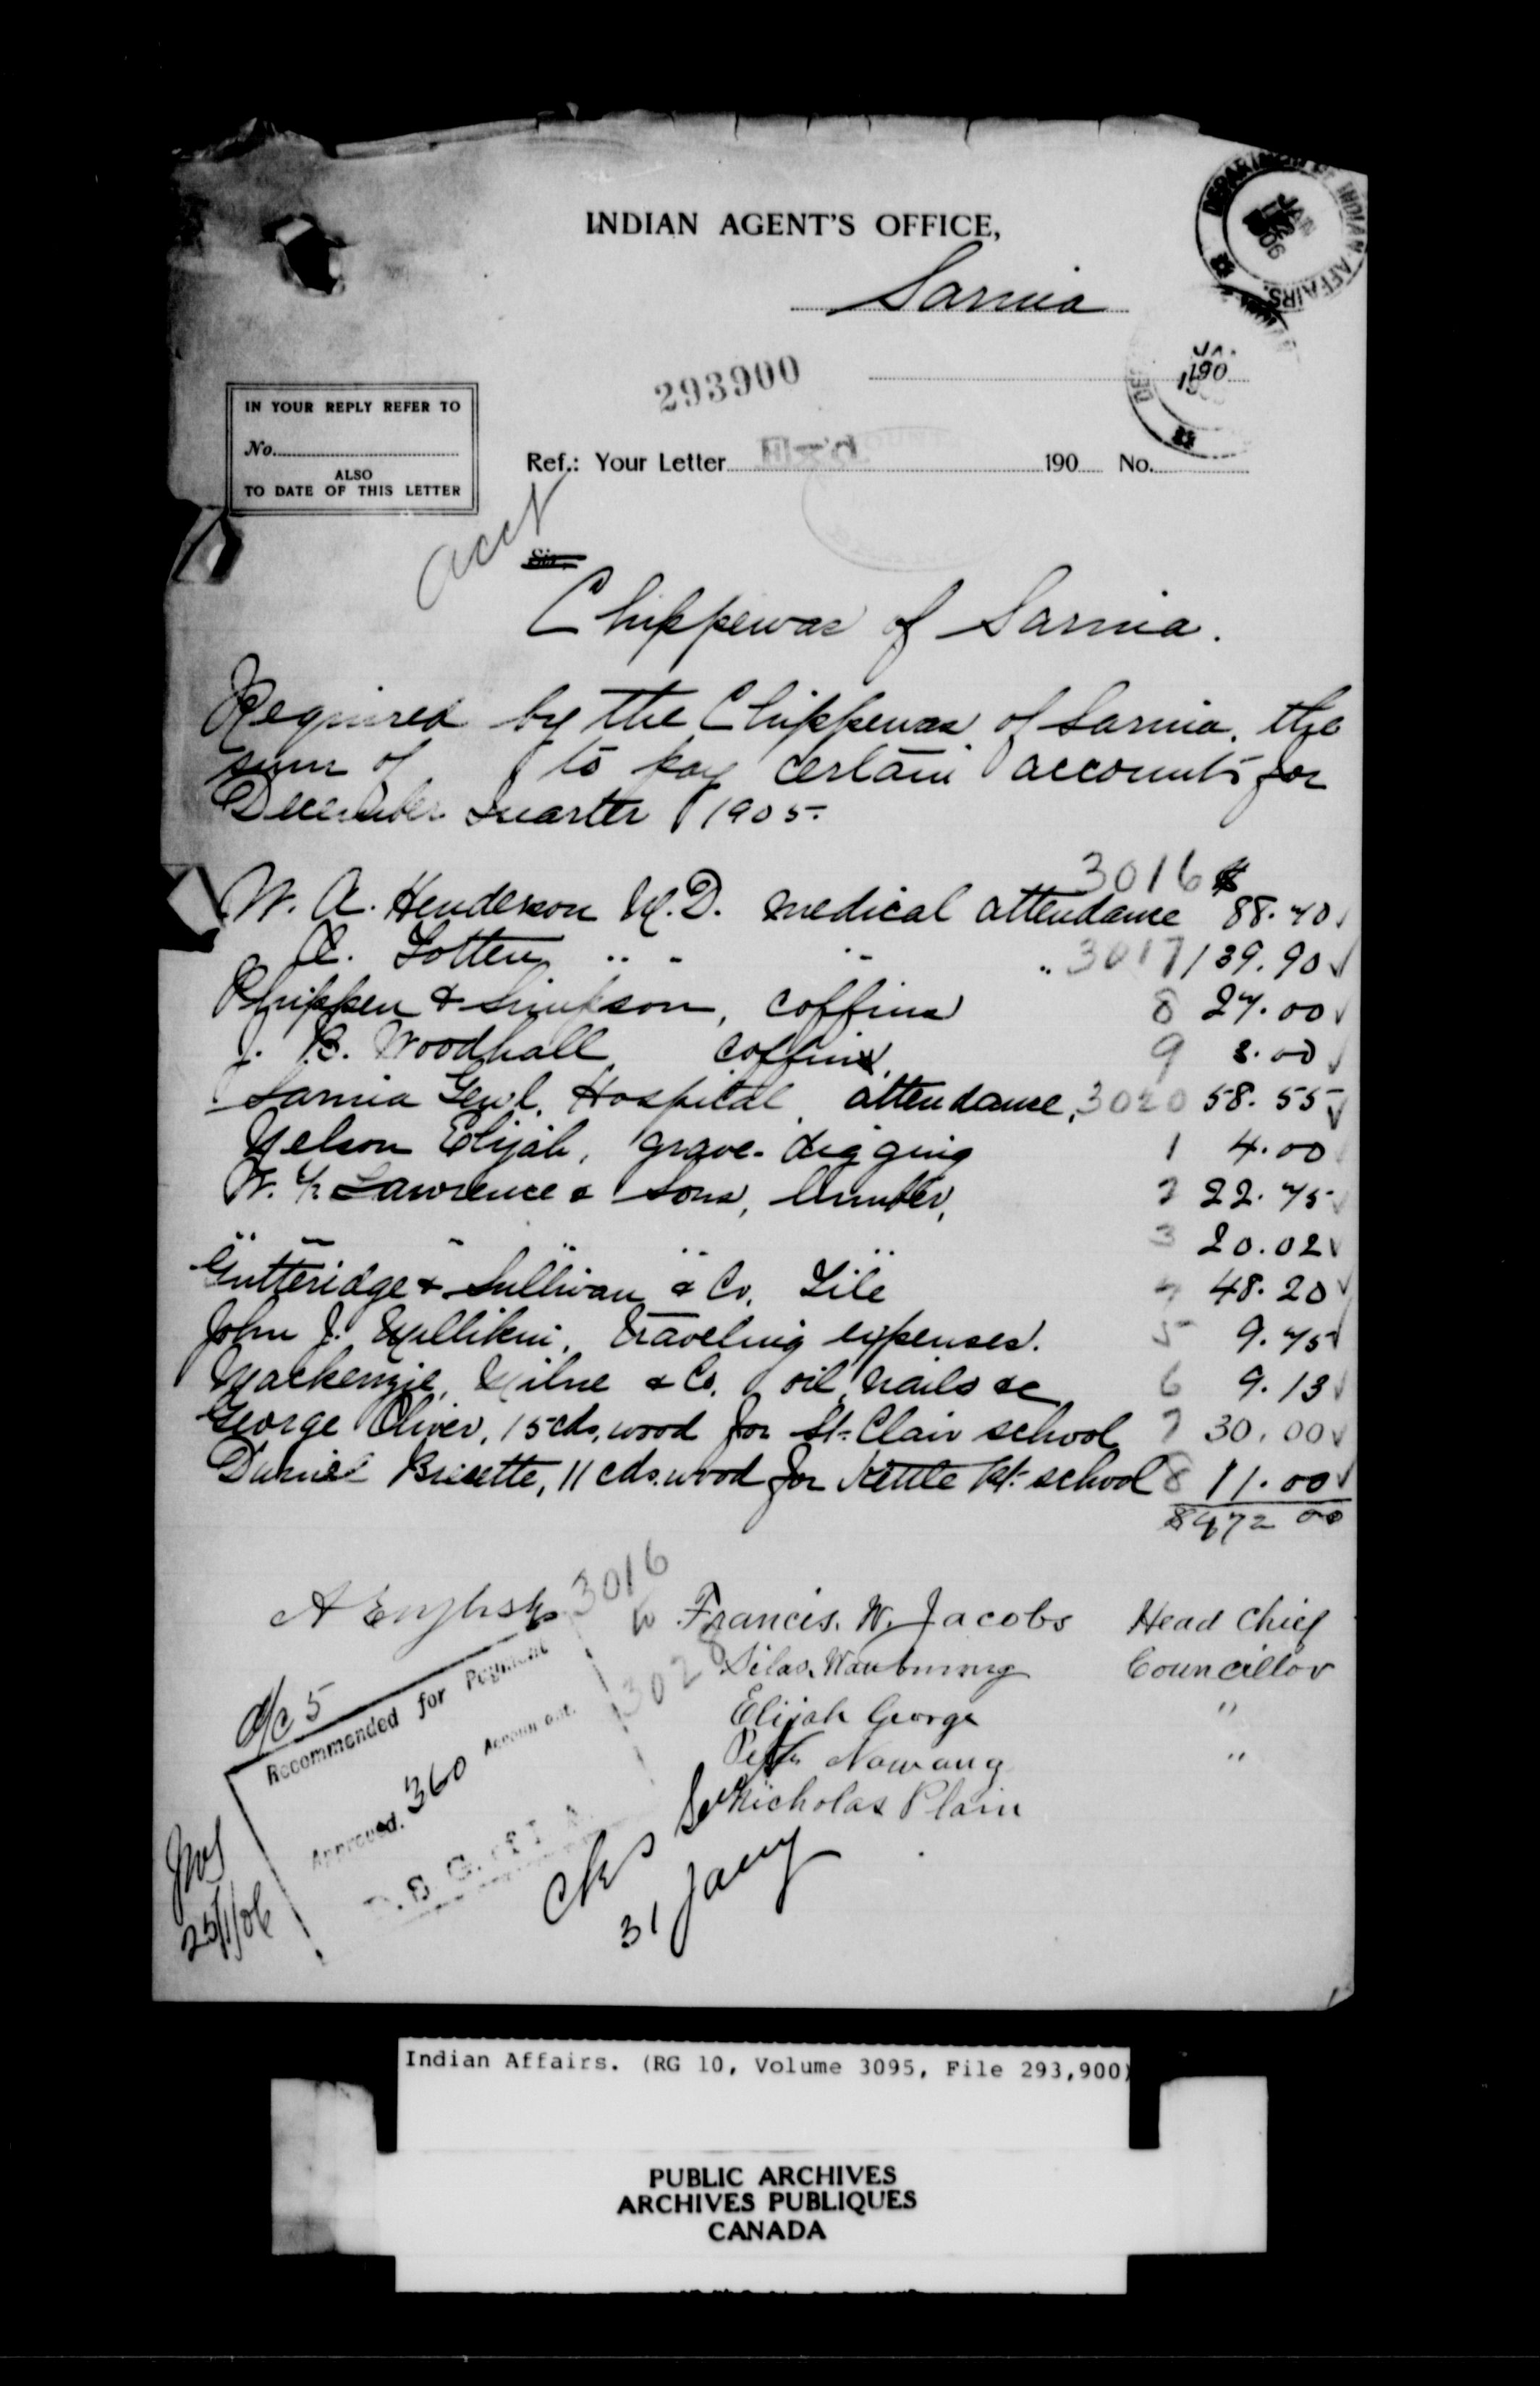 INDIAN AGENT'S OFFICE,
Sarnia
DEPARTMENT OF INDIAN AFFAIRS.
JAN 1906
293900
190
IN YOUR REPLY REFER TO
No.
ALSO
TO DATE OF THIS LETTER
Ref.: Your Letter Ex'd. 190 No.
acct
Sir,
Chippewas of Sarnia.
Required by the Chippewas of Sarnia, the
sum of to pay certain accounts for
December Quarter 1905.
W. A. Henderson M.D. medical attendance 3016 $ 88.70
A. Totten " " " " 3017 139.90
Phippen & Simpson, coffins 8 27.00
J. B. Woodhall coffin, 9 3.00
Sarnia Gen'l. Hospital attendance, 3020 58.55
Nelson Elijah, grave-digging 1 4.00
W. Lawrence & Sons, lumber, 2 22.75
" " " " " " 3 20.02
Gutteridge & Sullivan & Co. Tile 4 48.20
John J. Millikin, Traveling expenses. 5 9.75
Mackenzie, Milne & Co. oil, nails &c 6 9.13
George Oliver, 15 cds. wood for St. Clair school 7 30.00
Daniel Bressette, 11 cds. wood for Kettle Pt. school 8 11.00
$472 00
A English
3016
to
3028
Francis. W. Jacobs Head Chief
Silas Waubmong Councillor
Elijah George "
Peter Nawaug "
Nicholas Plain
a/c 5
Recommended for Payment
Accountant.
Approved. 360
D. S. G. of I. A.
25/1/06
cks
31 Jany
Indian Affairs. (RG 10, Volume 3095, File 293,900)
PUBLIC ARCHIVES
ARCHIVES PUBLIQUES
CANADA